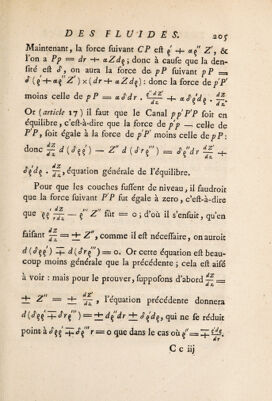 DES FLUIDES. 205
Maintenant, la force suivant CP est ϱ' + αϱ'' Z', &
l'on a Pp = dr + αZdϱ; donc à cause que la den-
sité est δ, on aura la force de pP suivant pP =
δ (ϱ' + αϱ'' Z') × (dr + αZdϱ): donc la force de p'P'
moins celle de pP = αδdr. + αδϱ'dϱ.
Or (article 17) il faut que le Canal pp'P'P soit en
équilibre, c'est-à-dire que la force de p'p — celle de
P'P, soit égale à la force de p'P' moins celle de pP:
donc d (δϱϱ') — Z'' d (δrϱ''') = δϱ''dr +
δϱ'dϱ. , équation générale de l'équilibre.
Pour que les couches fussent de niveau, il faudroit
que la force suivant P'P fut égale à zero, c'est-à-dire
que — ϱ'' Z'' fût = 0; d'où il s'ensuit, qu'en
faisant = ± Z'', comme il est nécessaire, on auroit
d (δϱϱ') ∓ d(δrϱ''') = 0. Or cette équation est beau-
coup moins générale que la précédente; cela est aisé
à voir: mais pour le prouver, supposons d'abord =
± Z'' = ± , l'équation précédente donnera
d (δϱϱ' ∓ δrϱ''') = ± δϱ''dr ± δϱ'dϱ, qui ne se réduit
point à δϱϱ' ∓ δϱ''' r = 0 que dans le cas où ϱ'' =
C c iij